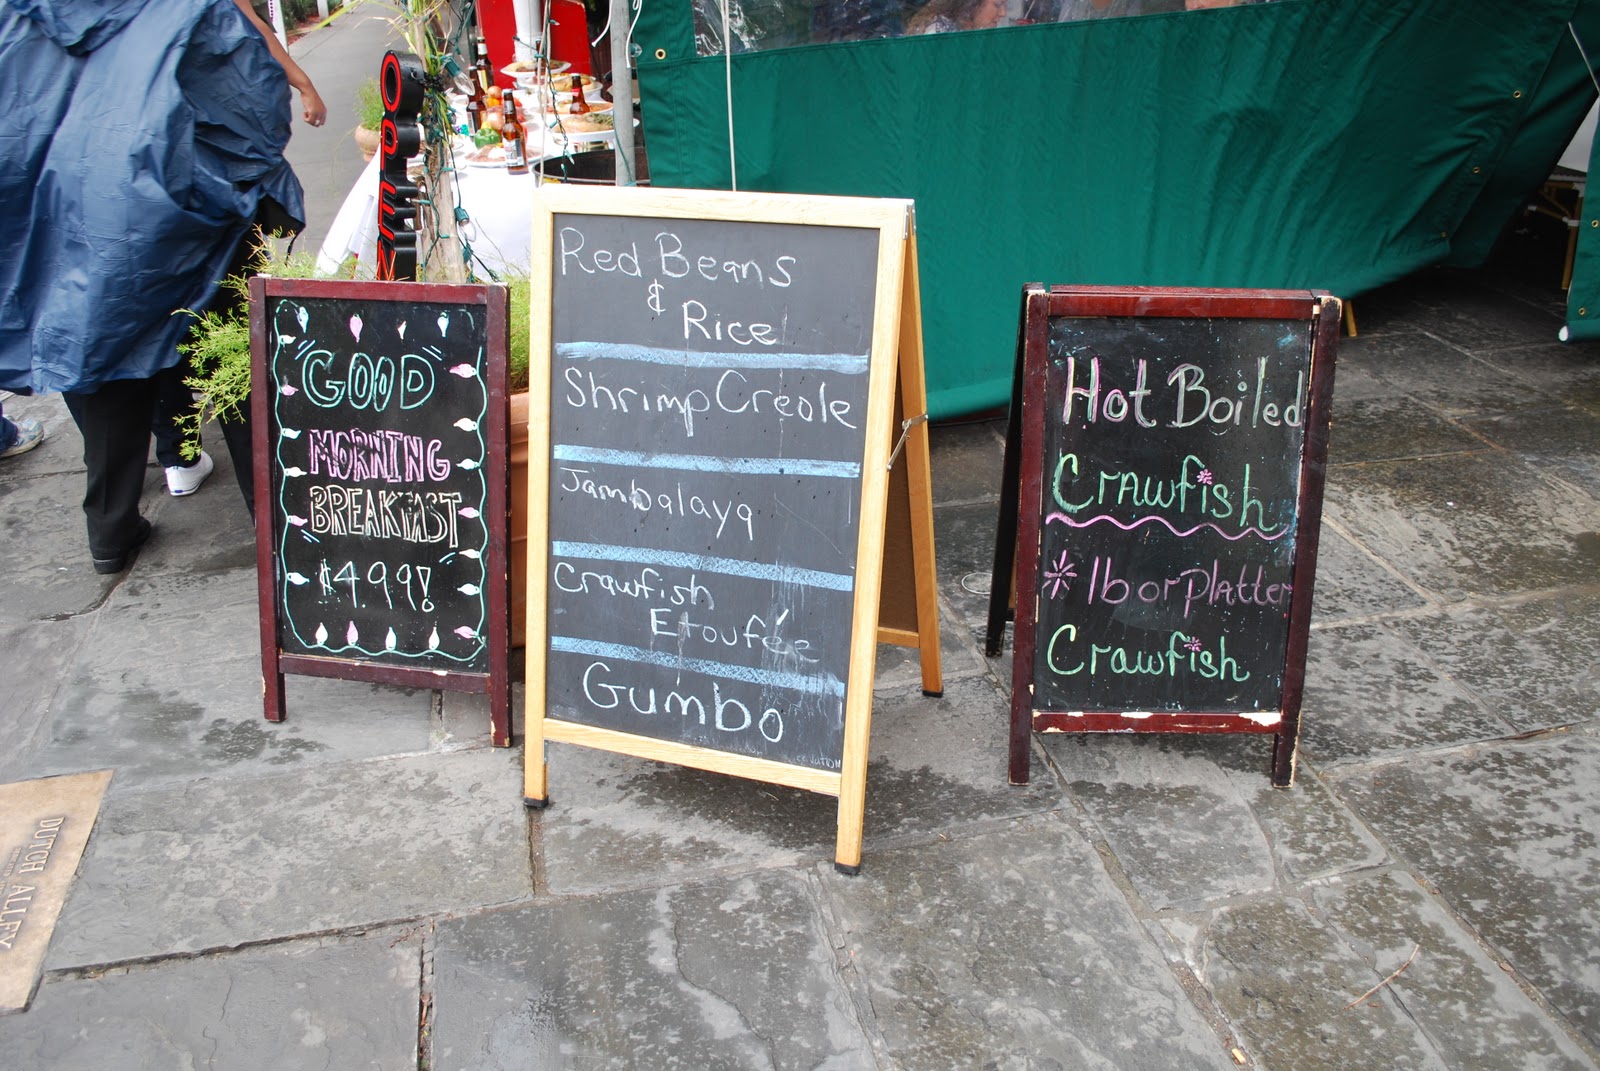 OPEN
GOOD
MORNING
BREAKFAST
$4.99!
Red Beans
&
Rice
Shrimp Creole
Jambalaya
Crawfish
Etoufée
Gumbo
Hot Boiled
Crawfish
* lb or Platter
Crawfish
DUTCH ALLEY